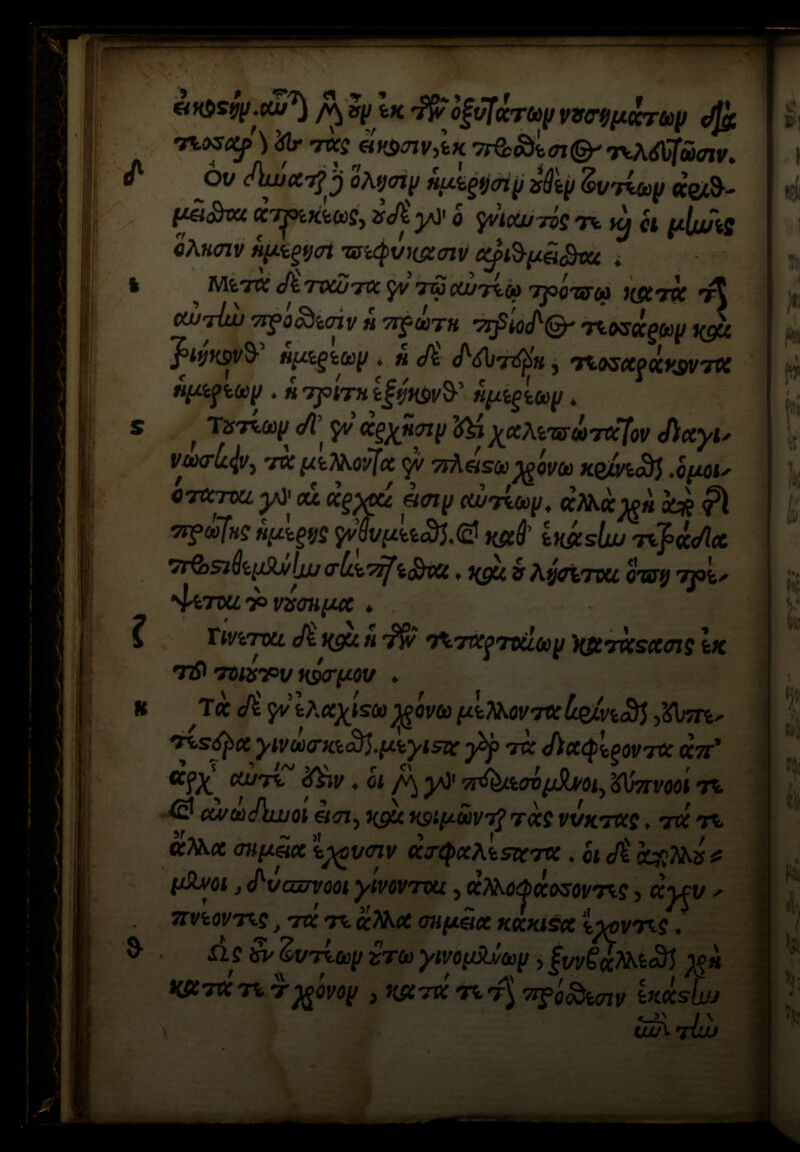 εἰκοστήν. αὗται μὲν οὖν ἐκ τῶν ὀξυτάτων νουσημάτων διὰ
τεσσάρ ἐς τὰς εἴκοσιν, ἐκ προσθέσιος τελευτῶσιν.
δ Οὐ δύναται δὲ ὅλησιν ἡμέρησιν οὐθὲν τουτέων ἀριθ-
μεῖσθαι ἀτρεκέως, οὐδὲ γὰρ ὁ ἐνιαυτός τε καὶ οἱ μῆνες
ὅλησιν ἡμέρησι πεφύκασιν ἀριθμεῖσθαι .
ε Μετὰ δὲ ταῦτα ἐν τῷ αὐτέῳ τρόπῳ κατὰ τὴν
αὐτὴν πρόσθεσιν ἡ πρώτη περίοδος τεσσάρων καὶ
τριήκονθ' ἡμερέων . ἡ δὲ δευτέρη, τεσσαράκοντα
ἡμερέων . ἡ τρίτη ἑξήκονθ' ἡμερέων .
ς Τουτέων δ' ἐν ἀρχῆσιν ἐστὶ χαλεπώτατον διαγι-
νώσκειν, τὰ μέλλοντα ἐν πλείστῳ χρόνῳ κρίνεσθαι. ὁμοι-
όταται γὰρ αἱ ἀρχαί εἰσιν αὐτέων. ἀλλὰ χρὴ ἀπὸ τῆς
πρώτης ἡμέρης ἐνθυμέεσθαι. καὶ καθ' ἑκάστην τετράδα
προστιθεμένην σκέπτεσθαι . καὶ οὐ λήσεται ὅπῃ τρέ-
ψεται τὸ νούσημα .
ζ Γίνεται δὲ καὶ ἡ τῶν τεταρταίων κατάστασις ἐκ
τοῦ τοιούτου κόσμου .
η Τὰ δὲ ἐν ἐλαχίστῳ χρόνῳ μέλλοντα κρίνεσθαι, εὐπε-
τέστερα γινώσκεσθαι. μέγιστα γὰρ τὰ διαφέροντα ἀπ'
ἀρχῆς αὐτέων ἐστιν . οἱ μὲν γὰρ περιεσόμενοι, εὔπνοοί τε
καὶ ἀνώδυνοί εἰσι, καὶ κοιμῶνται τὰς νύκτας , τά τε
ἄλλα σημεῖα ἔχουσιν ἀσφαλέστατα . οἱ δὲ ἀπολλού-
μενοι , δύσπνοοι γίνονται , ἀλλοφάσσοντες , ἀγρυ-
πνέοντες , τά τε ἄλλα σημεῖα κάκιστα ἔχοντες .
θ . Ὡς οὖν τουτέων οὕτω γινομένων , ξυνβάλλεσθαι χρὴ
κατά τε τὸν χρόνον , κατά τε τὴν πρόσθεσιν ἑκάστην
ἐπὶ τὴν